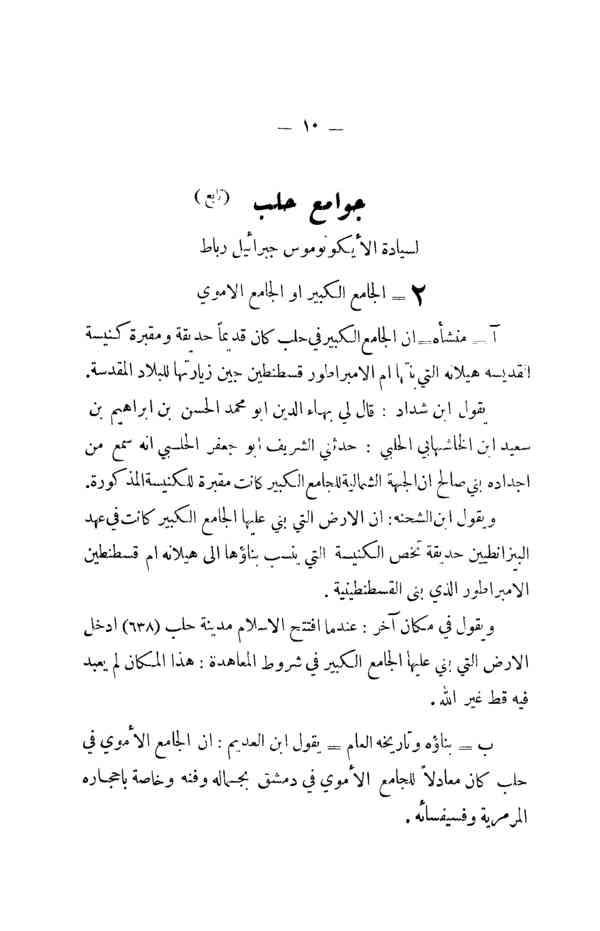 — ١٠ —
جوامع حلب (تابع)
لسيادة الأيكونوموس جبرائيل رباط
٢ — الجامع الكبير او الجامع الاموي
آ — منشأه — ان الجامع الكبير في حلب كان قديماً حديقة ومقبرة كنيسة
القديسه هيلانه التي بنتها ام الامبراطور قسطنطين حين زيارتها للبلاد المقدسة.
يقول ابن شداد : قال لي بهاء الدين ابو محمد الحسن بن ابراهيم بن
سعيد ابن الخاشهابي الحلبي : حدثني الشريف ابو جعفر الحلسبي انه سمع من
اجداده بني صالح ان الجهة الشمالية للجامع الكبير كانت مقبرة للكنيسة المذكورة.
ويقول ابن الشحنه : ان الارض التي بني عليها الجامع الكبير كانت في عهد
البيزانطيين حديقة تخص الكنيسة التي ينسب بناؤها الى هيلانه ام قسطنطين
الامبراطور الذي بنى القسطنطينية .
ويقول في مكان آخر : عندما افتتح الاسلام مدينة حلب (٦٣٨) ادخل
الارض التي بني عليها الجامع الكبير في شروط المعاهدة : هذا المكان لم يعبد
فيه قط غير الله .
ب — بناؤه وتاريخه العام — يقول ابن العديم : ان الجامع الأموي في
حلب كان معادلاً للجامع الأموي في دمشق بجماله وفنه وخاصة باحجاره
المرمرية وفسيفسائه .